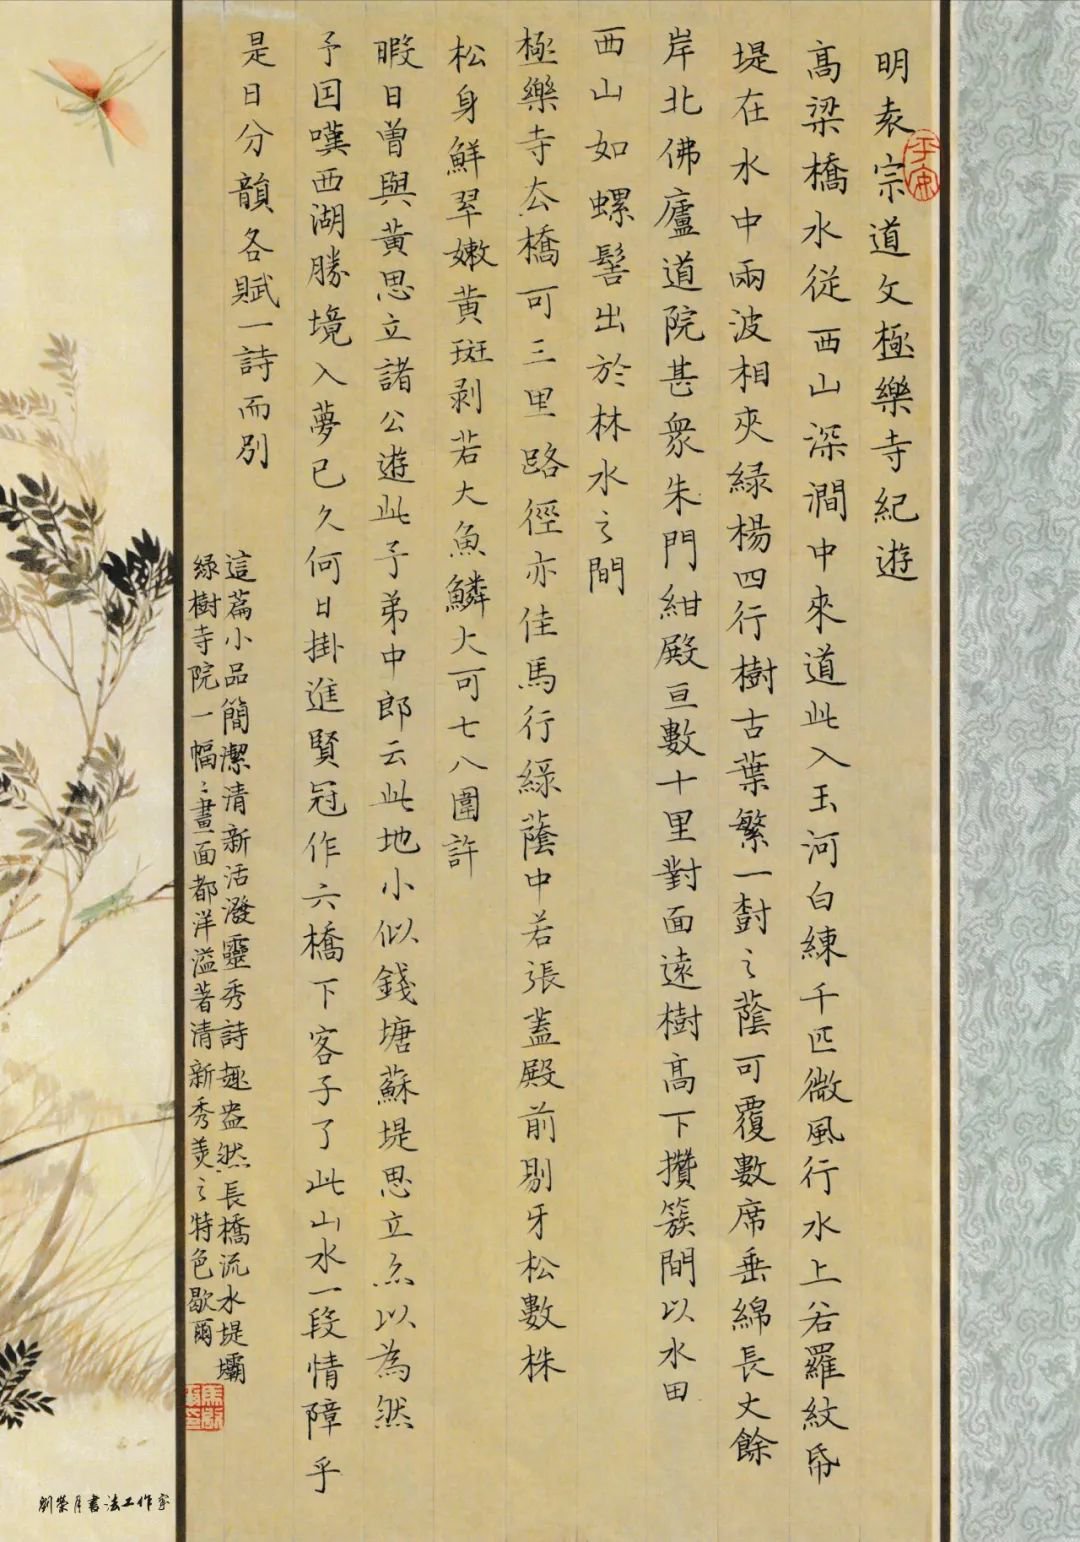 明袁宗道文極樂寺紀遊
高梁橋水從西山深澗中來道此入玉河白練千匹微風行水上若羅紋帋
堤在水中兩波相夾綠楊四行樹古葉繁一樹之蔭可覆數席垂綿長丈餘
岸北佛廬道院甚眾朱門紺殿亘數十里對面遠樹高下攢簇間以水田
西山如螺髻出於林水之間
極樂寺去橋可三里路徑亦佳馬行綠蔭中若張蓋殿前剔牙松數株
松身鮮翠嫩黃斑剥若大魚鱗大可七八圍許
暇日曾與黃思立諸公遊此予弟中郎云此地小似錢塘蘇堤思立亦以為然
予因嘆西湖勝境入夢已久何日掛進賢冠作六橋下客子了此山水一段情障乎
是日分韻各賦一詩而別
這篇小品簡潔清新活潑靈秀詩趣盎然長橋流水堤壩
綠樹寺院一幅〻畫面都洋溢著清新秀美之特色歇爾
平安
劉榮月書法工作室